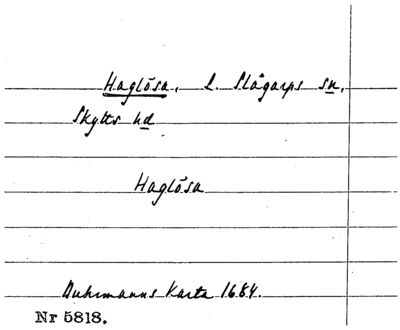 Haglösa. L. Slågarps sn.
Skytts hd
Haglösa
Buhrmanns Karta 1684.
Nr 5818.